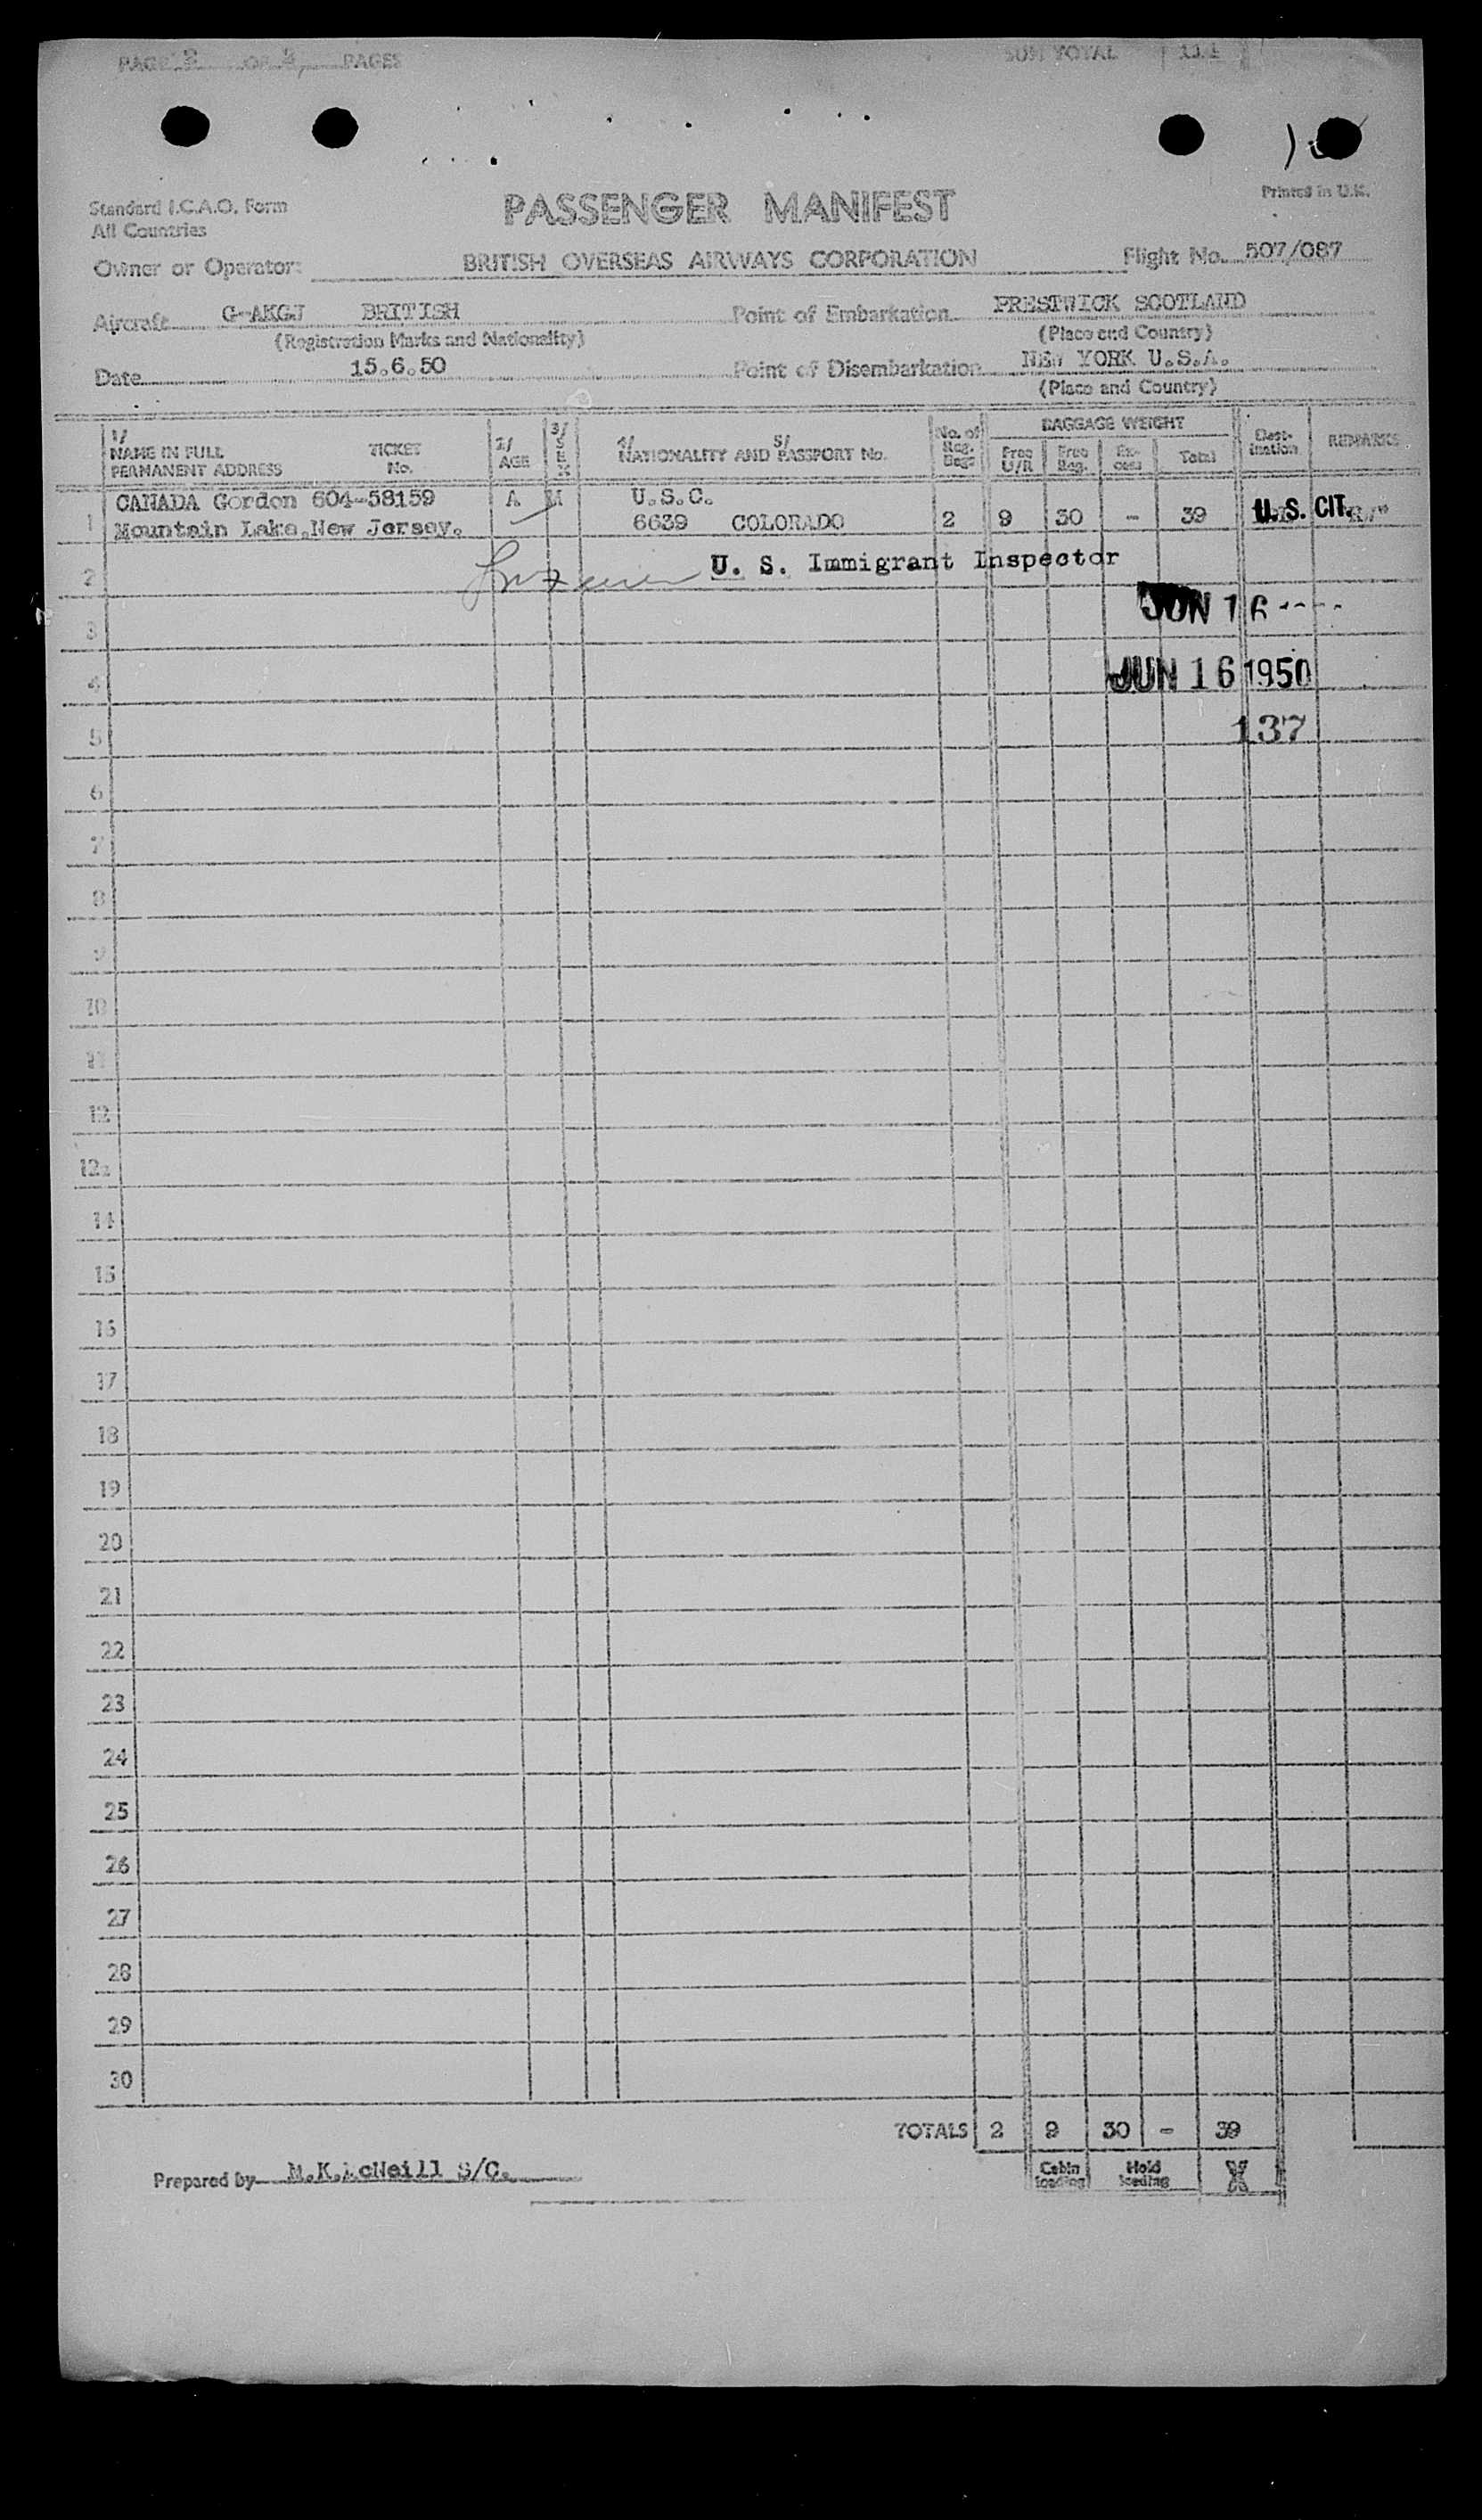 PAGE OF PAGES
SUM TOTAL
Standard I.C.A.O. Form
All Countries
PASSENGER MANIFEST
Printed in U.K.
Owner or Operator: BRITISH OVERSEAS AIRWAYS CORPORATION Flight No. 507/087
Aircraft G-AKGJ BRITISH Point of Embarkation PRESTWICK SCOTLAND
(Registration Marks and Nationality) (Place and Country)
Date 15.6.50 Point of Disembarkation NEW YORK U.S.A.
(Place and Country)
1/ NAME IN FULL PERMANENT ADDRESS TICKET No. 2/ AGE 3/ SEX 4/ 5/ NATIONALITY AND PASSPORT No. No. of Reg. Bags BAGGAGE WEIGHT Free U/R Free Reg. Ex-cess Total Dest-ination REMARKS
CANADA Gordon 604-58159 A M U.S.C.
1 Mountain Lake.New Jersey. 6639 COLORADO 2 9 30 - 39 U.S. CIT.
2 U. S. Immigrant Inspector
JUN 16
3
4 JUN 16 1950
5 137
6
7
8
9
10
11
12
12a
14
15
16
17
18
19
20
21
22
23
24
25
26
27
28
29
30
TOTALS 2 9 30 - 39
Prepared by M.K.McNeill S/C.
Cabin loading Hold loading X